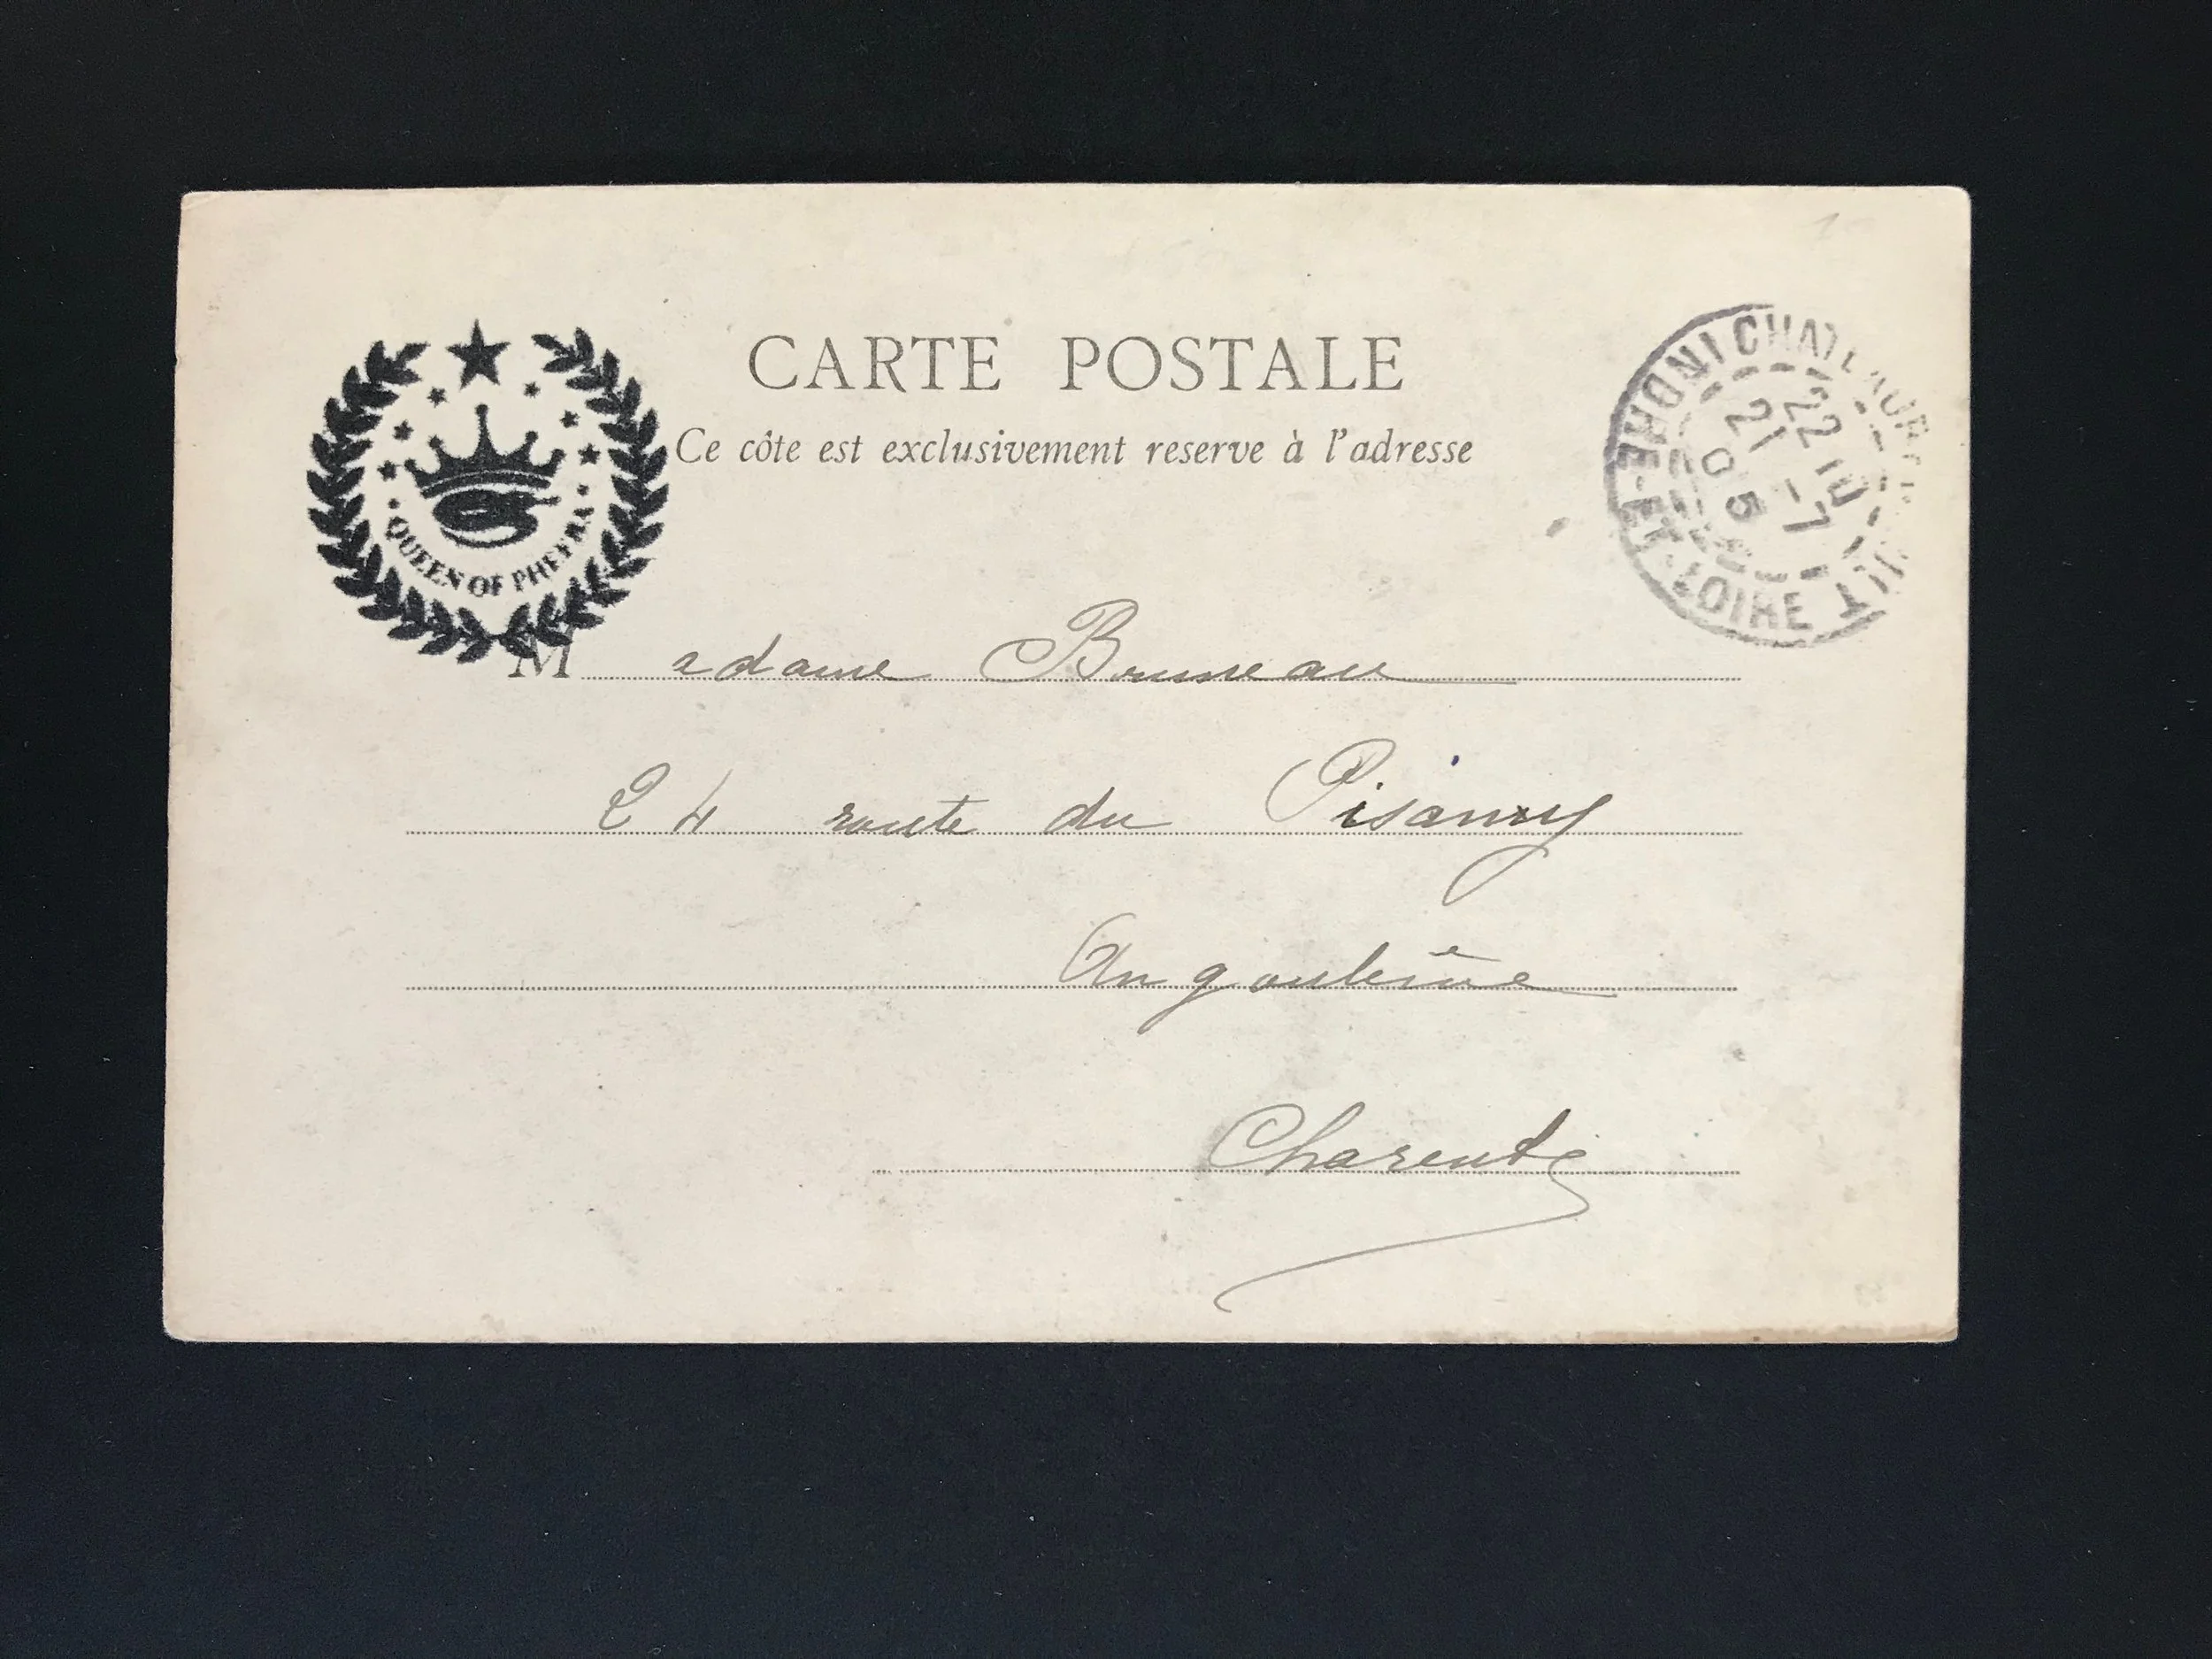 CARTE POSTALE
Ce côte est exclusivement reserve à l'adresse
QUEEN OF
Madame Bruneau
24 route du Pisany
Angoulême
Charente
22 10
21 -7
05
ET-LOIRE